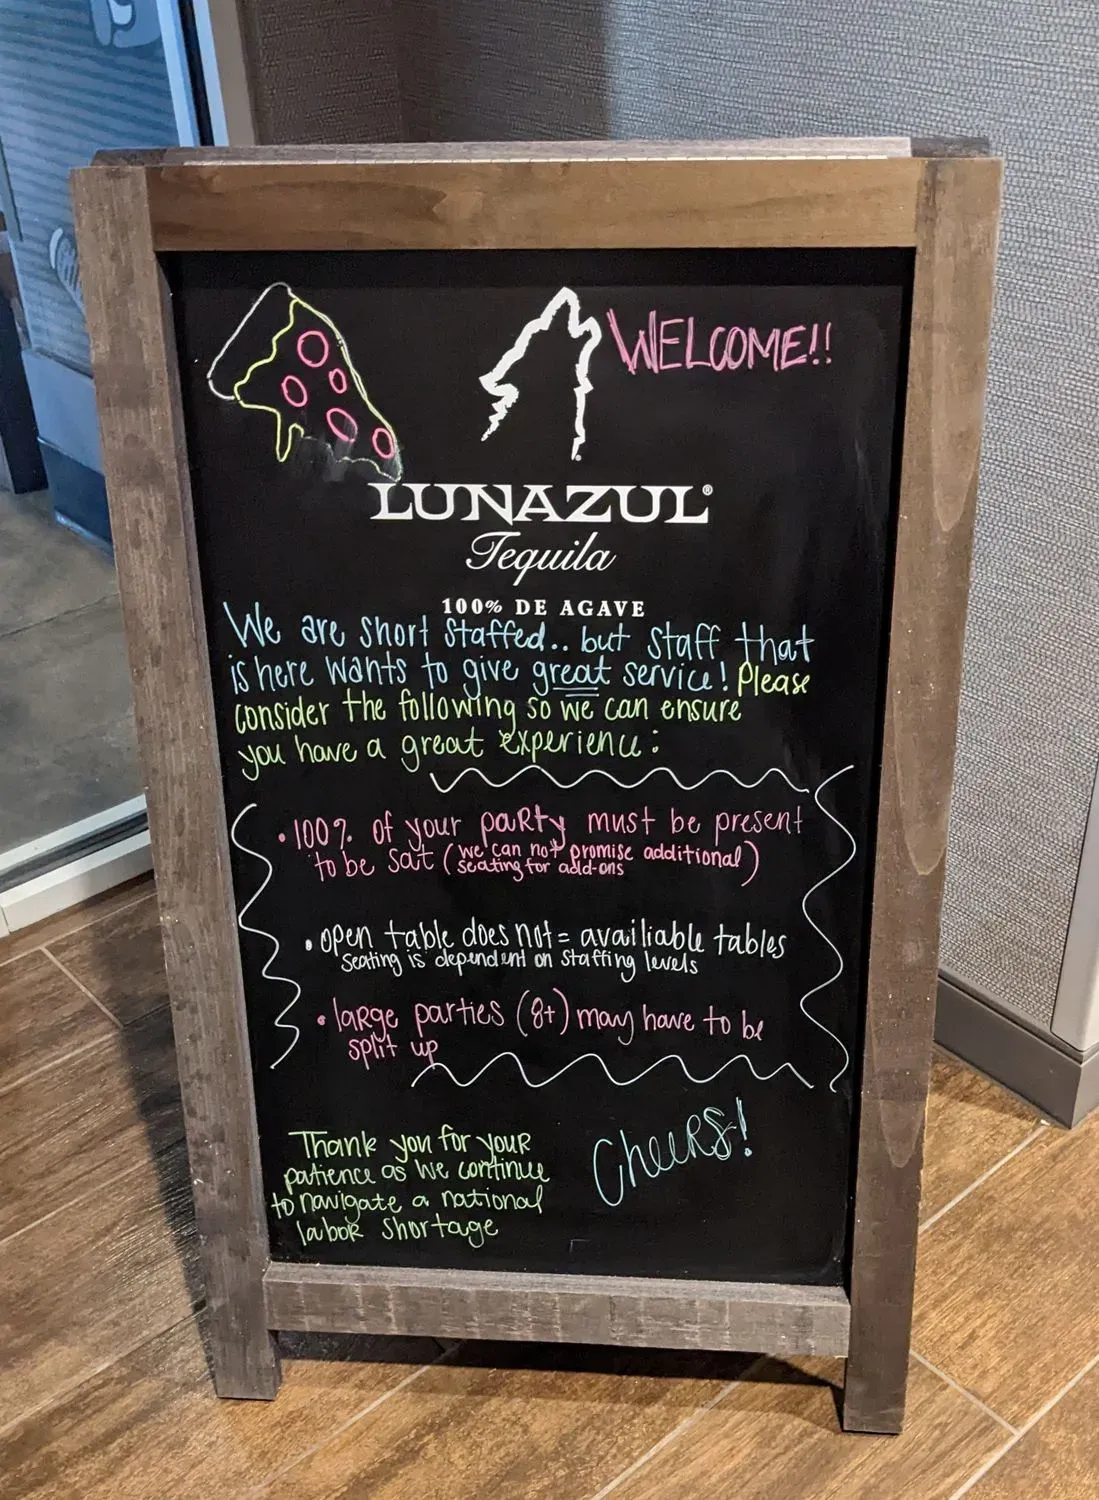 WELCOME!!
LUNAZUL®
Tequila
100% DE AGAVE
We are short staffed.. but staff that
is here wants to give great service! Please
consider the following so we can ensure
you have a great experience:
• 100% of your party must be present
to be sat (we can not promise additional)
seating for add-ons
• open table does not = availiable tables
seating is dependent on staffing levels
• large parties (8+) may have to be
split up
Thank you for your
patience as we continue
to navigate a national
labor shortage
Cheers!